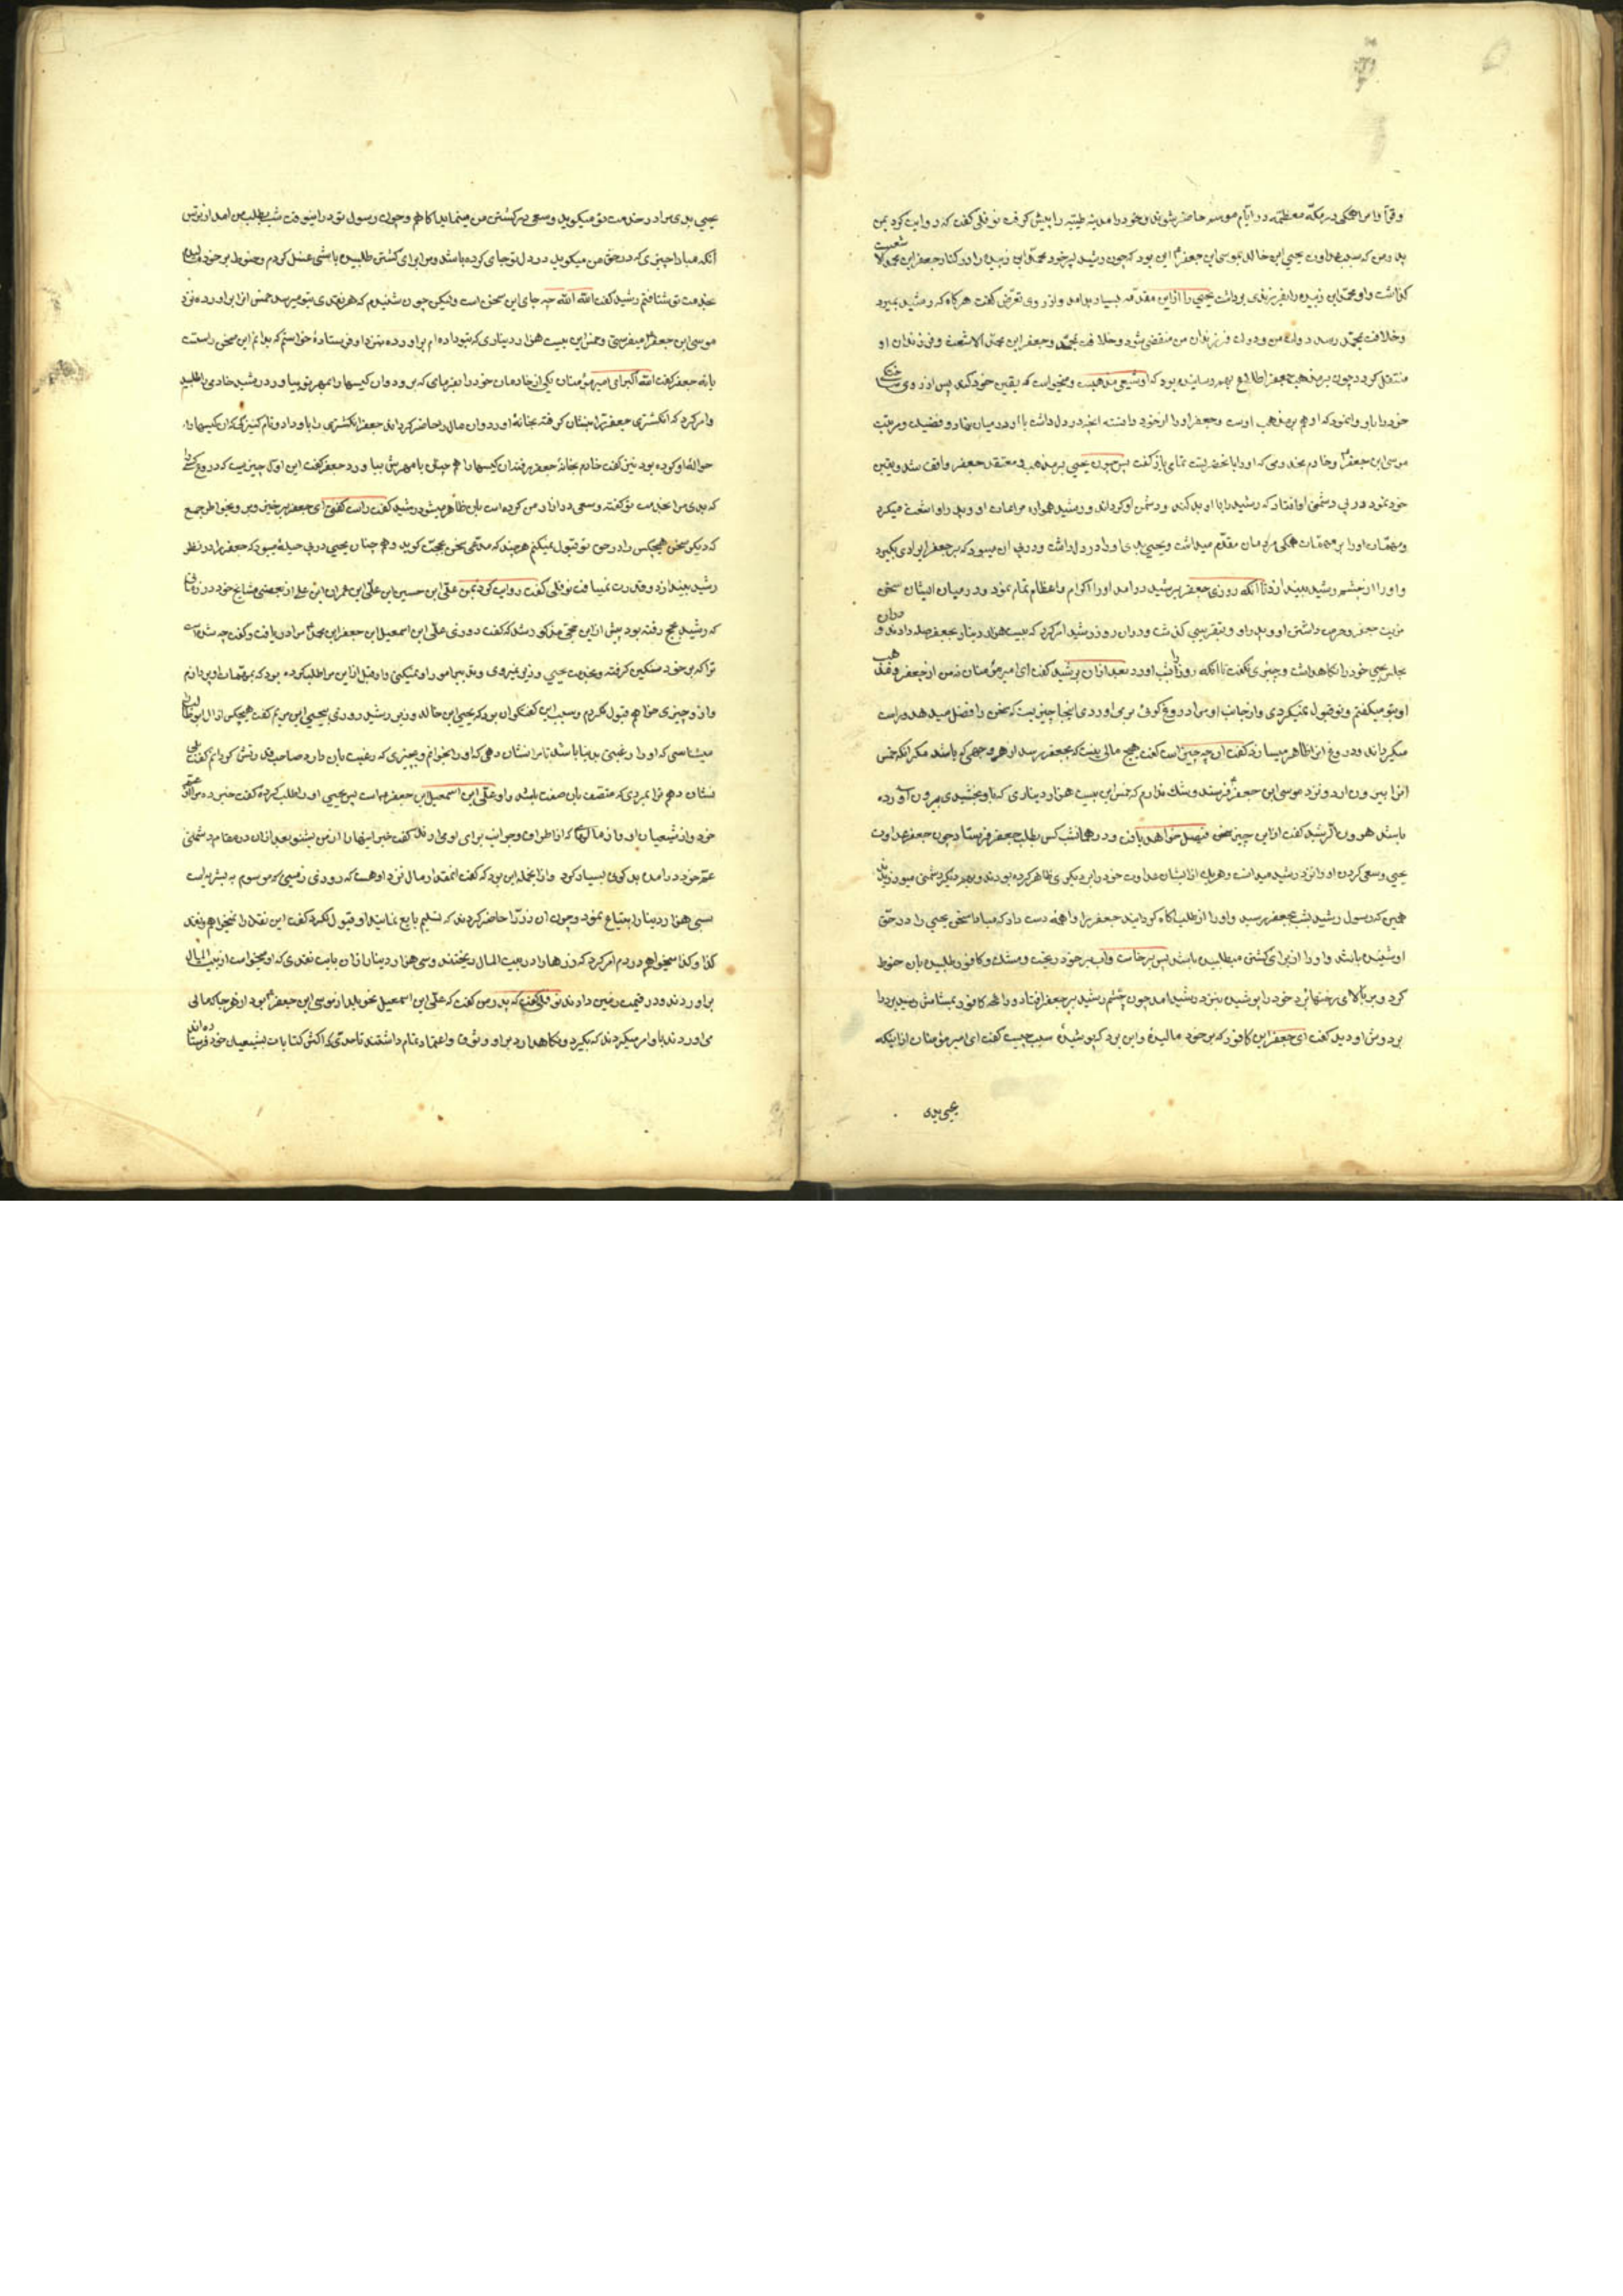 و قرآ را مر همگی در مکه معظمه در ایام موسم حاضر شوند و خود راه مدینه طیبه را پیش گرفت نوفلی گفت که روایت کرد بمن
پدر من که سبب عداوت یحیی ابن خالد بموسی ابن جعفر این بود که چون رشید پسر خود محمد ابن زبیده را در کنار جعفر ابن محمد الاشعث
گذاشت و او محمد ابن زبیده را بفرزندی برداشت یحیی را ازین مقدمه بسیار بد امد و از روی تعرض گفت هرگاه که رشید بمیرد
و خلافت بمحمد رسد دولت من و دولت فرزندان من منقضی شود و خلافت بمحمد و جعفر ابن محمد الاشعث و فرزندان او
منتقل گردد چون بر مذهب جعفر اطلاع بهم رسانیده بود که او شیعی مذهبست و میخواست که یقین خود کند پس از روی
خود را باو وا نمود که او هم بر مذهب اوست و جعفر او را از خود دانسته انچه در دل داشت با او در میان نهاد و فضیلت و مرتبت
موسی ابن جعفر و خادم مخدومی که او را بانحضرتست تمامی باز گفت پس چون یحیی بر مذهب و معتقد جعفر واقف شد و یقین
خود نمود در پی دشمنی او افتاد که رشید را با او بد کند و دشمن او گرداند و رشید همواره مراعات او و پدر او اشعث میکرد
و مهمات او را بر مهمات همگی مردمان مقدم میداشت و یحیی بدی او را در دل داشت و در پی ان میبود که بر جعفر ایرادی بگیرد
و او را از چشم رشید بیندازد تا انکه روزی جعفر بر رشید در امد او را اکرام و اعظام تمام نمود و در میان ایشان سخن
مزیت جعفر و حرمت داشتن او و پدر او بتقریبی گذشت و در ان روز رشید امر کرد که بیست هزار دینار بجعفر صله دادند و در ان
مجلس یحیی خود را نگاه داشت و چیزی نگفت تا انکه روز را بشب اورد بعد از ان برشید گفت ای امیر مؤمنان من از جعفر و مذهب
او بتو میگفتم و تو قبول نمیکردی و از جانب او مرا دروغگوئی بر می اوردی اینجا چیزیست که سخن را فصل میدهد و راست
میگرداند و دروغ انرا ظاهر میسازد گفت او چه چیز است گفت هیچ مالی نیست که بجعفر برسد از هر وجهی که باشد مگر انکه خمس
انرا بیرون ارد و نزد موسی ابن جعفر فرستد و شک ندارم که خمس این بیست هزار دیناری که باو بخشیدی بیرون اورده
باشد هرون الرشید گفت ازین چیز سخن فیصل خواهد یافت و در همانشب کس بطلب جعفر فرستاد چون جعفر عداوت
یحیی و سعی کردن او را نزد رشید میدانست و هر یک از ایشان عداوت خود را بدیگری ظاهر کرده بودند و بهم دیگر دشمنی میورزیدند
همین که رسول رشید بشب بجعفر رسید و او را از طلب اگاه گردانید جعفر را واهمه دست داد که مبادا سخن یحیی را در حق
او شنیده باشد و او را از برای کشتن میطلبیده باشد پس برخاست و اب بر خود ریخت و مشک و کافور طلبیده بان حنوط
کرد و بر بالای رختها برد خود را پوشیده بنزد رشید امد چون چشم رشید بر جعفر افتاد و رایحه کافور بمشامش رسید برد را
بر دوش او دید گفت ای جعفر این کافور که بر خود مالیده و این برد که پوشیده سبب چیست گفت ای امیر مؤمنان از اینکه
یحیی بدی
یحیی بدی مرا در خدمت تو میگوید و سعی در کشتن من مینماید اگاهم و چون رسول تو در اینوقت شب بطلب من امد از ترس
انکه مبادا چیزی که در حق من میگوید در دل تو جای کرده باشد و مرا برای کشتن طلبیده باشی غسل کردم و حنوط بر خود مالیدم
بخدمت تو شتافتم رشید گفت الله الله چه جای این سخن است و لیکن چون شنیدم که هر نقدی بتو میرسد خمس انرا براورده نزد
موسی ابن جعفر میفرستی و خمس این بیست هزار دیناری که بتو داده ام براورده بنزد او فرستادهٔ خواستم که بدانم این سخن راست
یا نه جعفر گفت الله اکبر ای امیر مؤمنان یکی از خادمان خود را بفرمای که برود و ان کیسها را بمهر تو بیاورد رشید خادمی را طلبید
و امر کرد که انگشتری جعفر را بنشان گرفته بخانهٔ او رود و ان مال را حاضر گرداند جعفر انگشتری را باو داد و نام کنیزکی که ان کیسها را
حوالهٔ او کرده بود نیز گفت خادم بخانهٔ جعفر رفت ان کیسها را همچنان با مهرش بیاورد جعفر گفت این اول چیزیست که دروغ کسی را
که بدی مرا بخدمت تو گفته و سعی در ازار من کرده است بان ظاهر میشود رشید گفت راست گفتی ای جعفر برخیز و برو بخاطر جمع
که دیگر سخن هیچکس را در حق تو قبول نمیکنم هر چند که مدعی سخن بحجت گوید و همچنان یحیی در پی حیله میبود که جعفر را در نظر
رشید بیندازد و قدرت نمییافت نوفلی گفت روایت کرد بمن علی ابن حسین ابن علی ابن عمران ابن علی از بعضی مشایخ خود در زمانی
که رشید بحج رفته بود پیش ازین حجی مذکور شد که گفت روزی علی ابن اسمعیل ابن جعفر ابن محمد مرا دریافت و گفت چه شده است
ترا که بر خود سنگین گرفته و بخدمت یحیی وزیر نمیروی و تدبیر امور او نمیکنی و او قبل ازین مرا طلب کرده بود که بمهمات او پردازم
و از و چیزی خواهم قبول نکردم و سبب این گفتگو ان بود که یحیی ابن خالد وزیر رشید روزی بیحیی ابن مریم گفت هیچکس از ال ابوطالب
میشناسی که او را رغبتی بدنیا باشد تا مرا نشان دهی که او را بخوانم و بچیزی که رغبت بان دارد صاحب گردانم گفت بلی
نشان دهم ترا بمردی که متصف بان صفت باشد و او علی ابن اسمعیل ابن جعفر است پس یحیی او را طلب کرده گفت خبر ده مرا از عم
خود و از شیعیان او و از مالهائی که از اطراف و جوانب برای او می ارند گفت خبر اینها را از من بشنو بعد از ان در مقام دشمنی
عم خود در امده بدگوئی بسیار کرد و از انجمله این بود که گفت انقدر مال نزد او هست که روزی زمینی که موسوم به بشریه است
بسی هزار دینار ابتیاع نمود و چون ان زر را حاضر کردند که تسلیم بایع نمایند او قبول نکرد گفت این نقد را نمیخواهم و نقد
کذا و کذا میخواهم در دم امر کرد که زرها را در بیت المال ریختند و سی هزار دینار از ان بابت نقدی که او میخواست از بیت المال
براوردند و در قیمت زمین دادند نوفلی گفت که پدر من گفت که علی ابن اسمعیل نحو بلد از موسی ابن جعفر بود از هر جا که مالی
می اوردند باو امر میکردند که بگیرد و نگاه دارد بر او وثوق و اعتماد تمام داشتند تا حدی که اکثر کتابات بشیعیان خود فرستاده اند